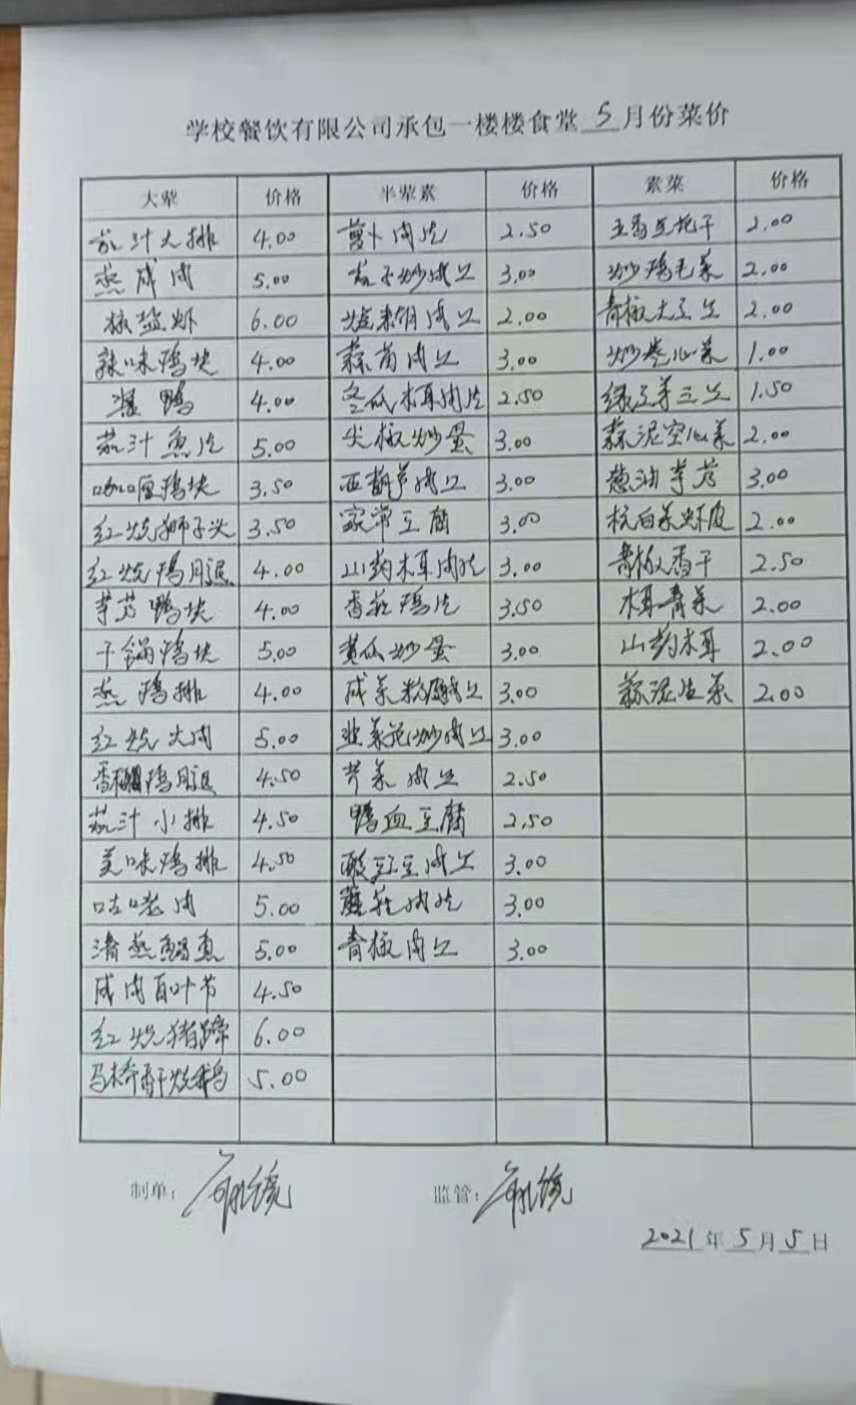 学校餐饮有限公司承包一楼楼食堂5月份菜价
大荤 价格 半荤素 价格 素菜 价格
茄汁大排 4.00 萝卜肉片 2.50 2.00
蒸咸肉 5.00 炒肉丝 3.00 炒鸡毛菜 2.00
椒盐虾 6.00 肉丝 2.00 青椒土豆丝 2.00
辣味鸡块 4.00 蒜苗肉丝 3.00 炒卷心菜 1.00
酱鸭 4.00 冬瓜木耳肉片 2.50 绿豆芽三丝 1.50
茄汁鱼片 5.00 尖椒炒蛋 3.00 蒜泥空心菜 2.00
咖喱鸡块 3.50 西葫芦肉丝 3.00 葱油芋艿 3.00
红烧狮子头 3.50 家常豆腐 3.00 杭白菜虾皮 2.00
红烧鸡腿 4.00 山药木耳肉片 3.00 青椒香干 2.50
芋艿鸭块 4.00 香菇鸡片 3.50 木耳青菜 2.00
干锅鸡块 5.00 黄瓜炒蛋 3.00 山药木耳 2.00
蒸鸡排 4.00 咸菜粉肉丝 3.00 蒜泥生菜 2.00
红烧大肉 5.00 韭菜花炒肉丝 3.00
鸡腿 4.50 芹菜肉丝 2.50
茄汁小排 4.50 鸭血豆腐 2.50
美味鸡排 4.50 酸豇豆肉丝 3.00
咕咾肉 5.00 蘑菇肉片 3.00
清蒸鳊鱼 5.00 青椒肉丝 3.00
咸肉百叶节 4.50
红烧猪蹄 6.00
马桥香干烧鹅 5.00
制单： 监管：
2021年5月5日